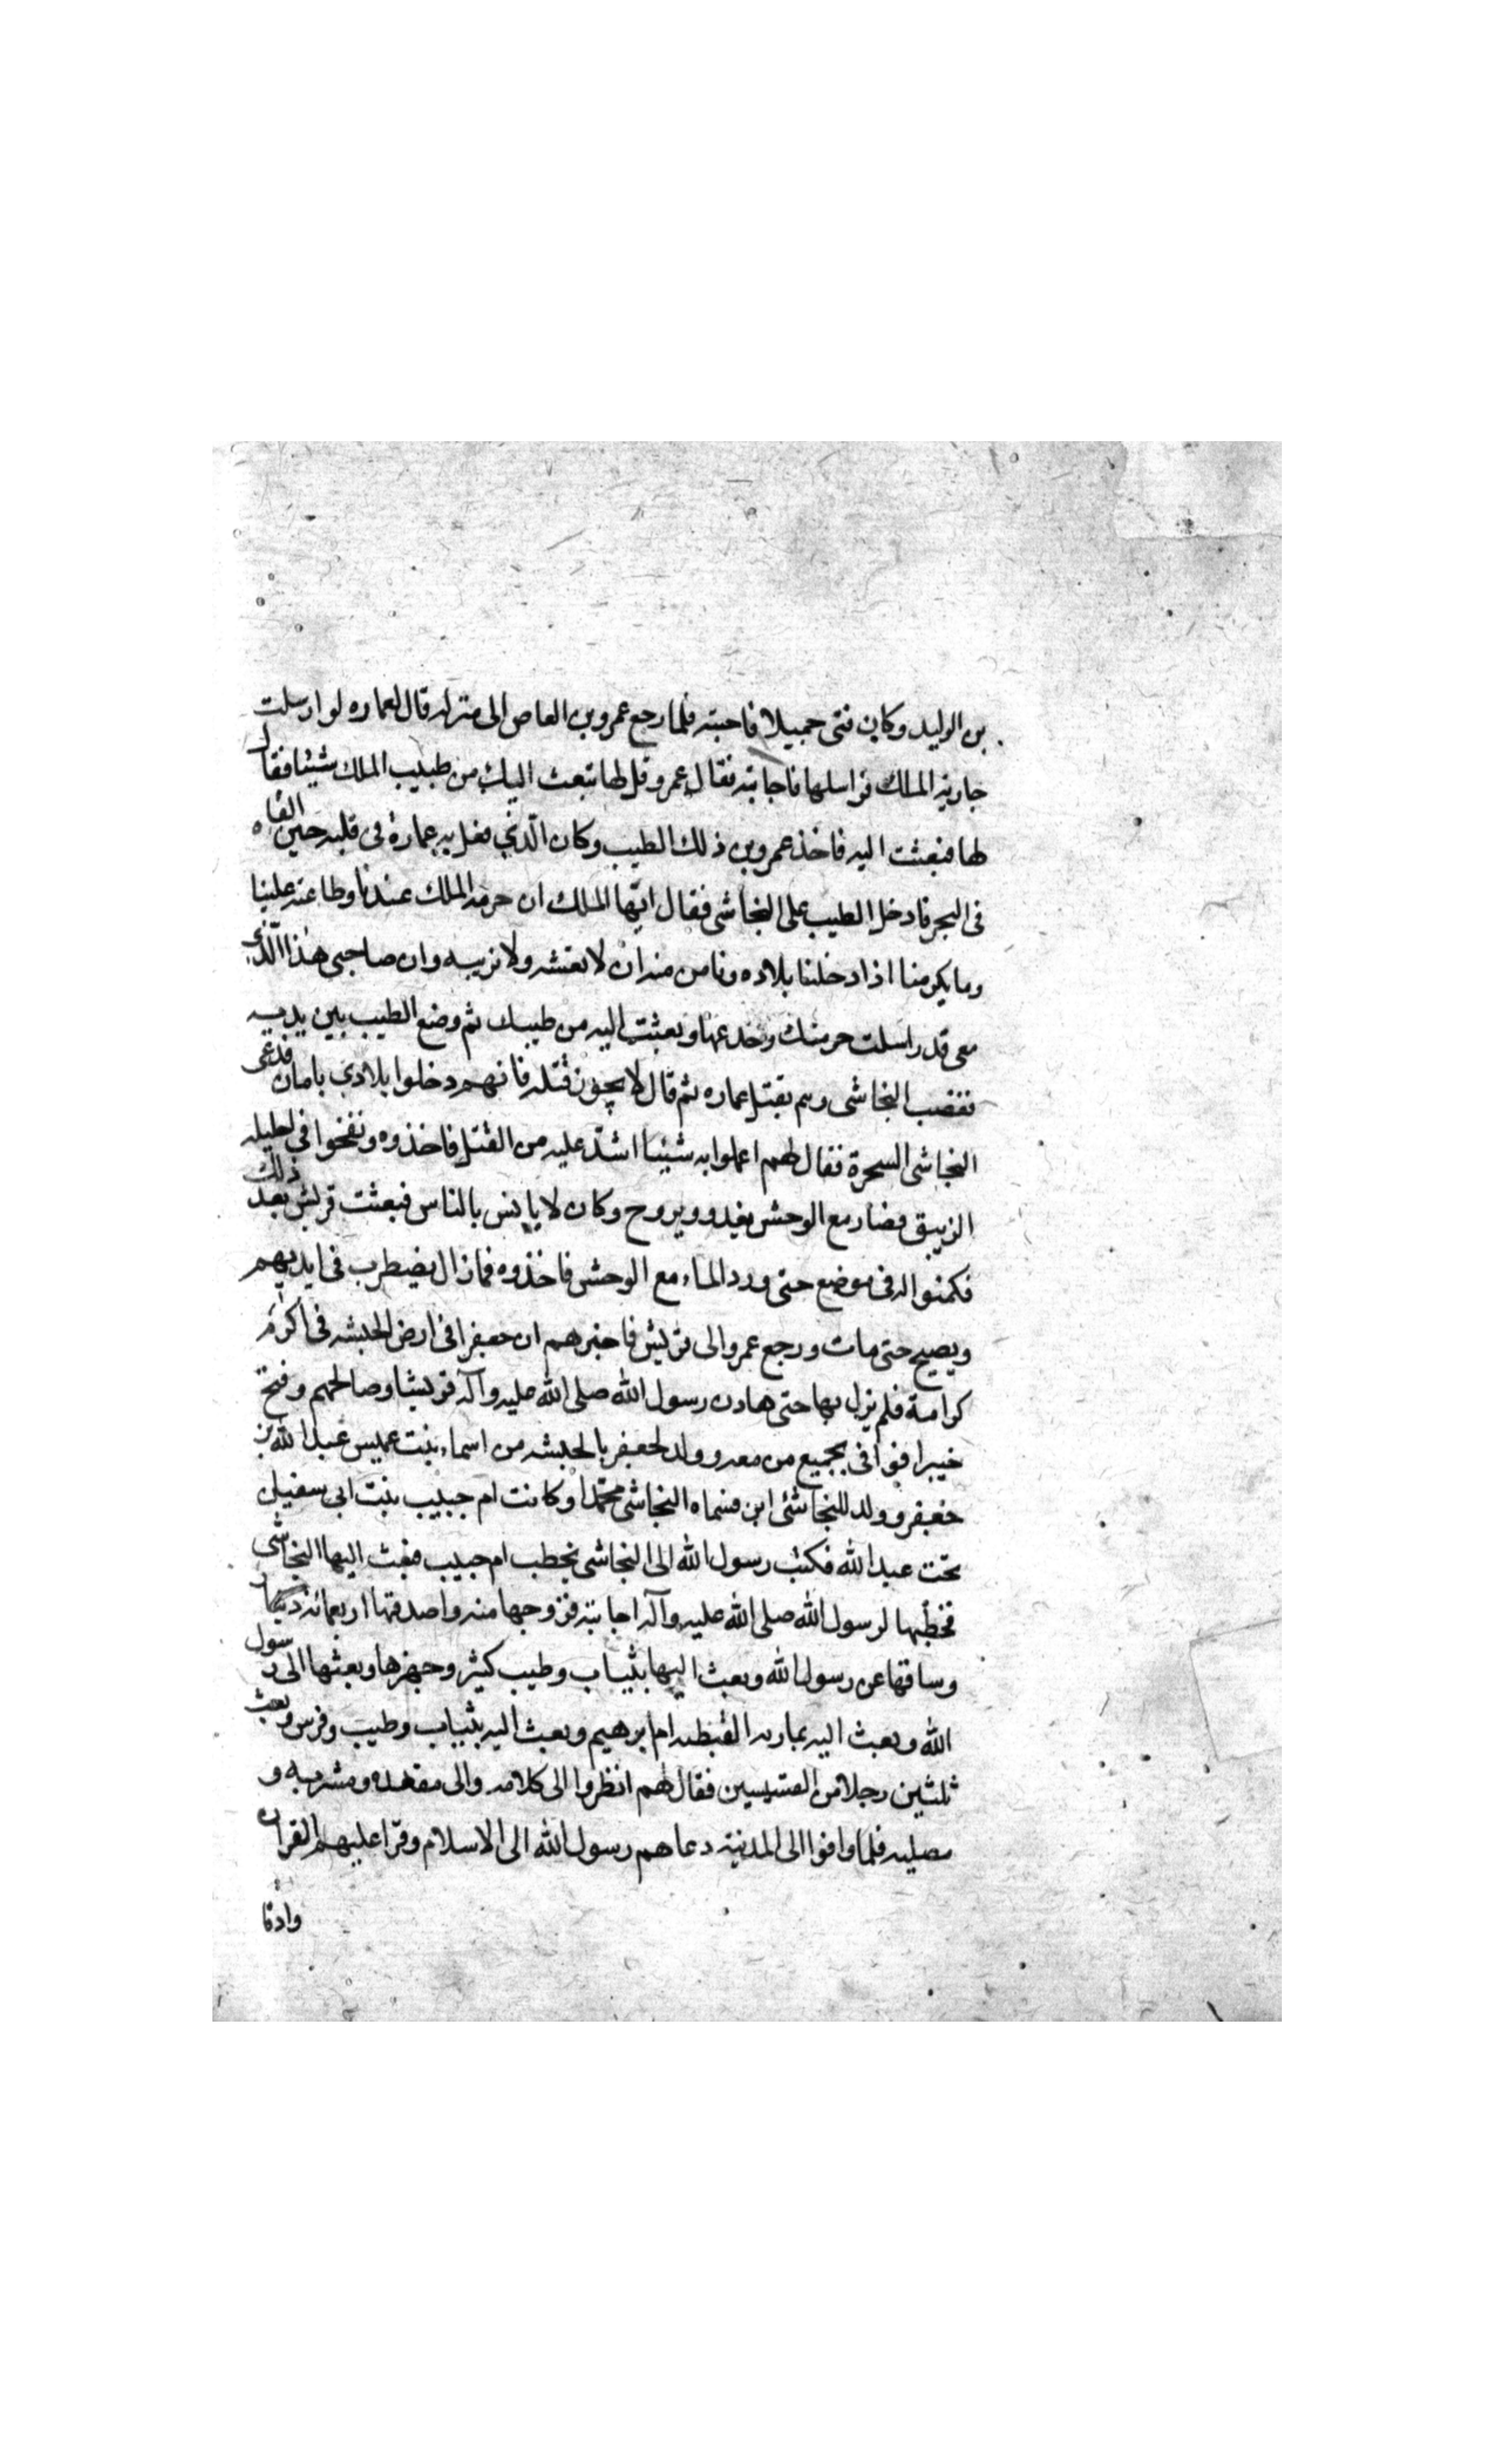 بن الوليد وكان فتى جميلا فاحبته فلما رجع عمرو بن العاص الى منزله قال لعماره لو ارسلت
جارية الملك فراسلها فاجابته فقال عمرو قل لها تبعث اليك من طيب الملك شيئا فقال
لها فبعثت اليه فاخذ عمرو من ذلك الطيب وكان الّذي فعل به عمارة فى قلبه حين القاه
فى البحر فادخل الطيب على النجاشى فقال ايّها الملك ان حرمه الملك عندنا وطاعته علينا
وما يكرمنا اذا دخلنا بلاده ونامن منه ان لا نغشه ولا نريبه وان صاحبى هذا الّذي
معى قد راسلت حرمتك وخدعها وبعثت اليه من طيبك ثم وضع الطيب بين يديه
فغضب النجاشى وهم بقتل عماره ثم قال لا يجوز قتله فانهم دخلوا بلادي بامان فدعى
النجاشى السحرة فقال لهم اعملوا به شيئا اشدّ عليه من القتل فاخذوه ونفخوا فى احليله
الزيبق فصار مع الوحش يغدو ويروح وكان لا يانس بالناس فبعثت قريش بعد ذلك
فكمنوا له فى موضع حتى ورد الماء مع الوحش فاخذوه فما زال يضطرب فى ايديهم
ويصيح حتى مات ورجع عمرو الى قريش فاخبرهم ان جعفرا فى ارض الحبشه فى اكرم
كرامة فلم يزل بها حتى هادن رسول الله صلى الله عليه وآله قريشا وصالحهم وفتح
خيبرا فوافى بجميع من معه وولد لجعفر بالحبشه من اسماء بنت عميس عبد الله بن
جعفر وولد للنجاشى ابن فسماه النجاشى محمّدا وكانت ام حبيب بنت ابى سفيان
تحت عبد الله فكتب رسول الله الى النجاشى يخطب ام حبيب فبعث اليها النجاشى
فخطبها لرسول الله صلى الله عليه وآله اجابته فزوجها منه واصدقها اربعمائة دينار
وساقها عن رسول الله وبعث اليها بثياب وطيب كثير وجهزها وبعثها الى رسول
الله وبعث اليه بماريه القبطيه ام ابرهيم وبعث اليه بثياب وطيب وفرس وبعث
ثلثين رجلا من القسيسين فقال لهم انظروا الى كلامه والى مقعده ومشربه و
مصليه فلما وافوا الى المدينة دعاهم رسول الله الى الاسلام وقرا عليهم القران
واذ قا